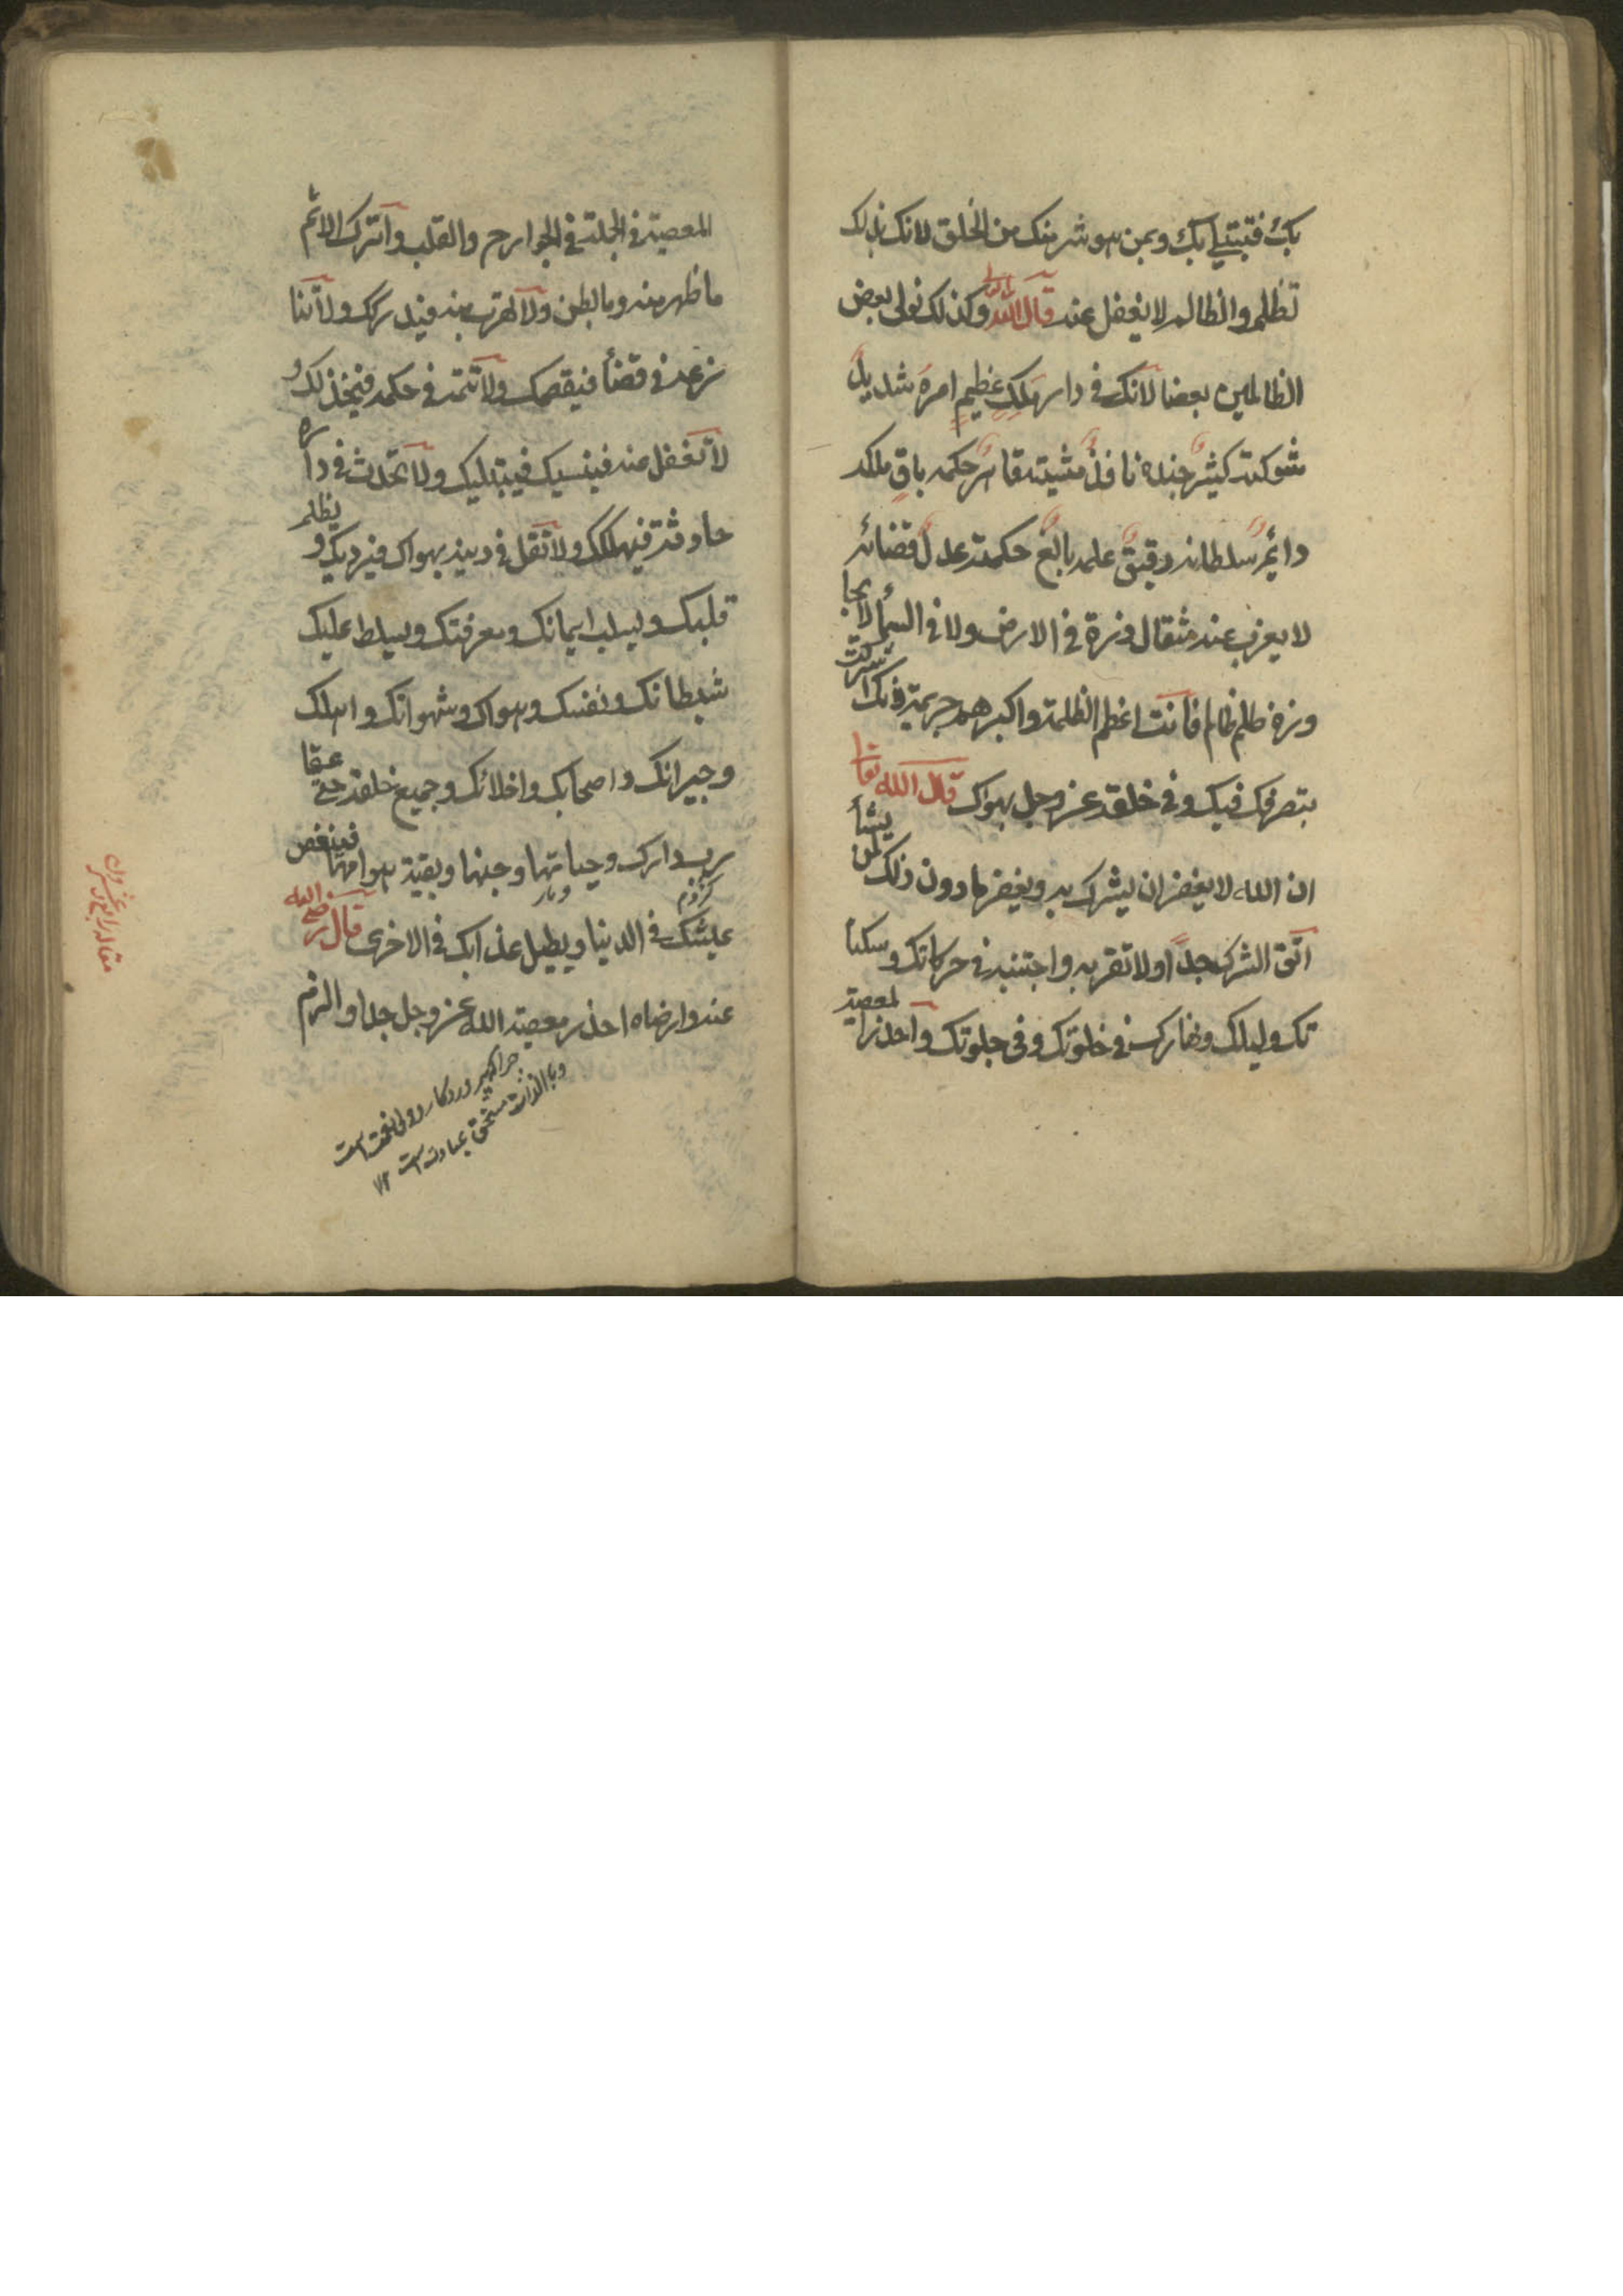 بك فتبتلي بك وبمن هو شر منك من الخلق لانك بذلك
تظلم والظالم لا يغفل عنه قال الله تعالى وكذلك نولى بعض
الظالمين بعضا لانك في دار ملك عظيم امره شديد
شوكته كثير جنده نافذ مشيته قاهر حكمه باق ملكه
دائم سلطانه دقيق علمه بالغ حكمته عدل قضائه
لا يعزب عنه مثقال ذرة في الارض ولا في السماء لا يجا
وزه ظلم ظالم فانت اعظم الظلمة واكبرهم جريمة فانك اشركت
بتصرفك فيك وفي خلقه عز وجل بهواك قال الله تعا
ان الله لا يغفر ان يشرك به ويغفر ما دون ذلك لمن يشاء
اتق الشرك جدا ولا تقربه واجتنبه في حركاتك وسكنا
تك وليلك ونهارك في خلوتك وفي جلوتك واحذر المعصية
المعصية في الجملة في الجوارح والقلب واترك الاثم
ما ظهر منه وما بطن ولا تهرب منه فيدركك ولا تنا
زعه في قضاء فيقصمك ولا تتهمه في حكمه فيخذلك و
لا تغفل عنه فينسيك فيبتليك ولا تحدث في داره
حادثة فيهلكك ولا تقل في دينه بهواك فيرديك و يظلم
قلبك ويسلب ايمانك ومعرفتك ويسلط عليك
شيطانك ونفسك وهواك وشهوانك واهلك
وجيرانك واصحابك واخلائك وجميع خلقه حتى عقا
رب دارك وحياتها وجنها وبقية هوامها فينغص
كژدم
و مار
عيشك في الدنيا ويطيل عذابك في الاخرى قال رضي الله
عنه وارضاه احذر معصية الله عز وجل جدا والزم
وبالذات مستحق عبادت است ١٢